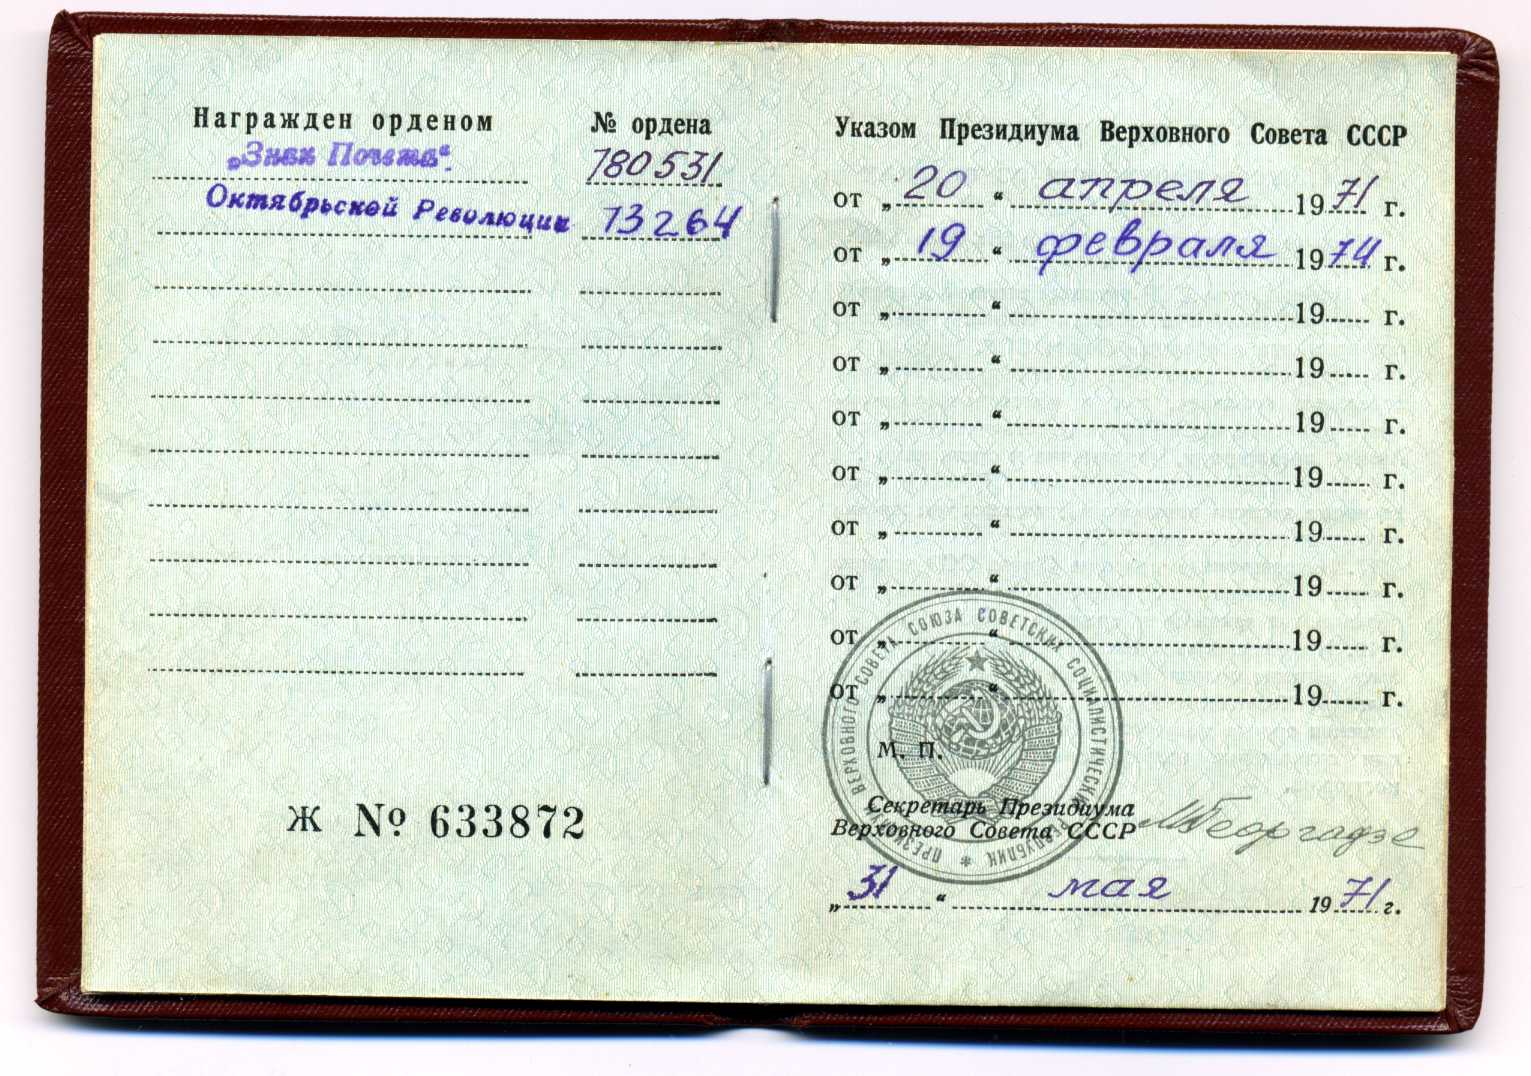 Награжден орденом № ордена
„Знак Почета“. 780531
Октябрьской Революции 13264
Ж № 633872
Указом Президиума Верховного Совета СССР
от „ 20 “ апреля 1971 г.
от „ 19 “ февраля 1974 г.
от „ “ 19 г.
от „ “ 19 г.
от „ “ 19 г.
от „ “ 19 г.
от „ “ 19 г.
от „ “ 19 г.
от „ “ 19 г.
от „ “ 19 г.
ПРЕЗИДИУМ ВЕРХОВНОГО СОВЕТА СОЮЗА СОВЕТСКИХ СОЦИАЛИСТИЧЕСКИХ РЕСПУБЛИК *
М. П.
Секретарь Президиума
Верховного Совета СССР МГеоргадзе
„ 31 “ мая 1971 г.